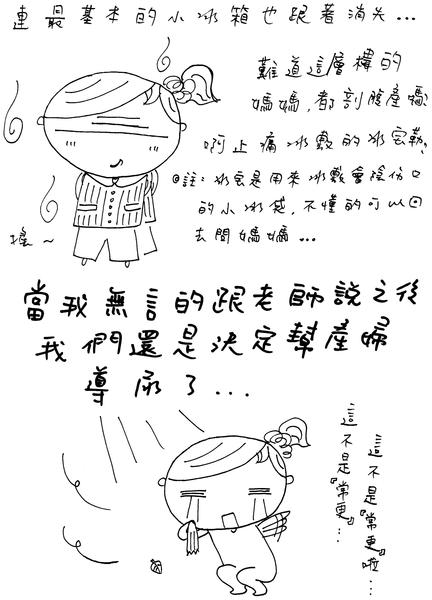 連最基本的小冰箱也跟著消失...
難道這層樓的
媽媽,都剖腹產嗎?
啊止痛冰敷的冰宝勒?
◎註:冰宝是用來冰敷會陰傷口
的小冰袋,不懂的可以回
去問媽媽...
搖~
當我無言的跟老師說之後
我們還是決定幫產婦
導尿了...
這不是『常更』...
這不是『常更』啦...